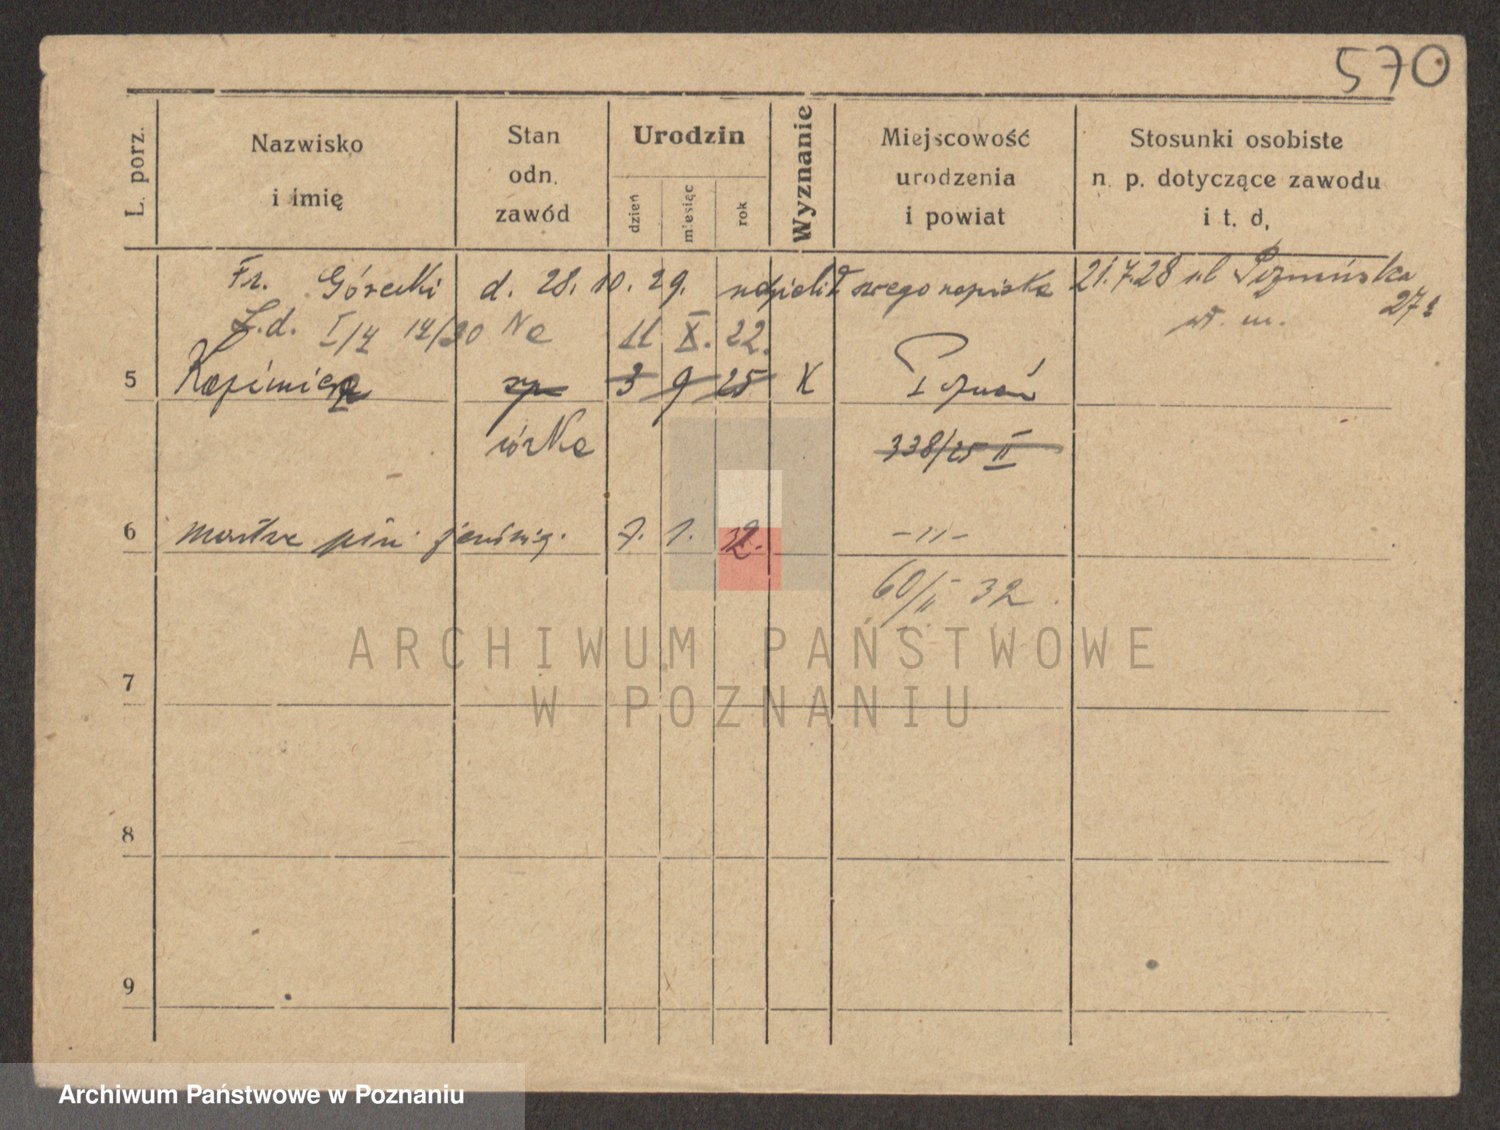 570
L. porz.
Nazwisko
i imię
Stan
odn.
zawód
Urodzin
dzień
miesiąc
rok
Wyznanie
Miejscowość
urodzenia
i powiat
Stosunki osobiste
n. p. dotyczące zawodu
i t. d,
Fr. Górecki d. 28. 10. 29. udzielił swego nazwiska 21.7.28 ul
27
Ż.d. I/4 14/30 11 X. 22.
5 Kazimiera 3 9 25 K Poznań
córka 338/25 II
6 martwe 7. 1. 32. -"-
60/II 32.
7
8
9
ARCHIWUM PAŃSTWOWE
W POZNANIU
Archiwum Państwowe w Poznaniu